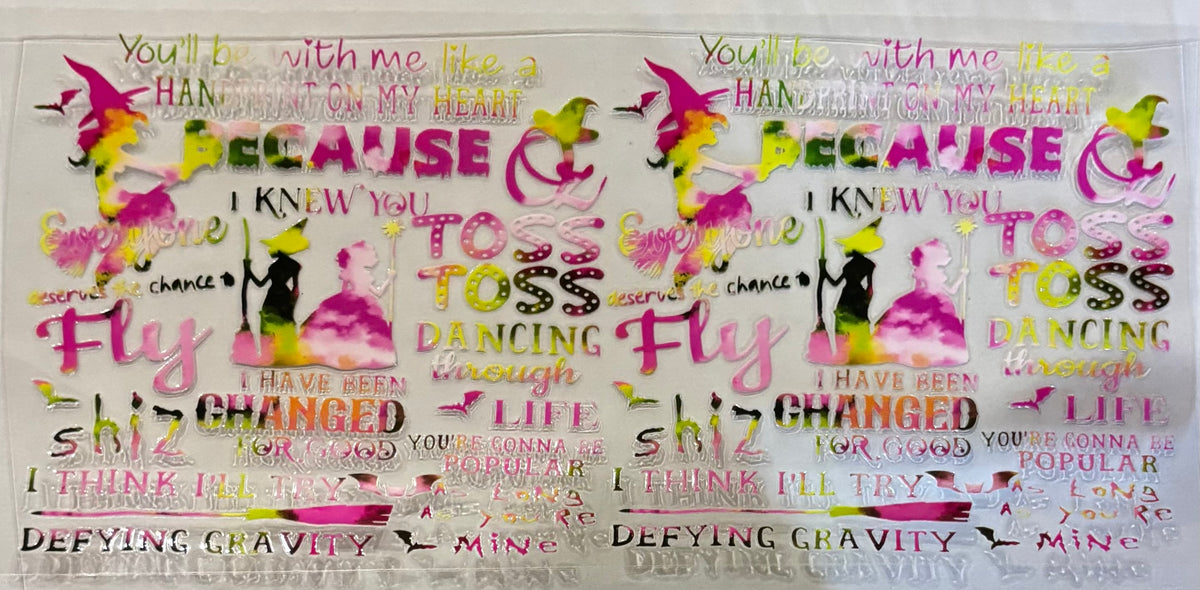 You'll be with me like a
HANDPRINT ON MY HEART
BECAUSE
I KNEW YOU
Everyone
deserves the chance to
Fly
TOSS
TOSS
DANCING
through
LIFE
I HAVE BEEN
CHANGED
FOR GOOD
shiz
YOU'RE GONNA BE
POPULAR
I THINK I'LL TRY
DEFYING GRAVITY
AS LONG
AS YOU'RE
MINE
You'll be with me like a
HANDPRINT ON MY HEART
BECAUSE
I KNEW YOU
Everyone
deserves the chance to
Fly
TOSS
TOSS
DANCING
through
LIFE
I HAVE BEEN
CHANGED
FOR GOOD
shiz
YOU'RE GONNA BE
POPULAR
I THINK I'LL TRY
DEFYING GRAVITY
AS LONG
AS YOU'RE
MINE